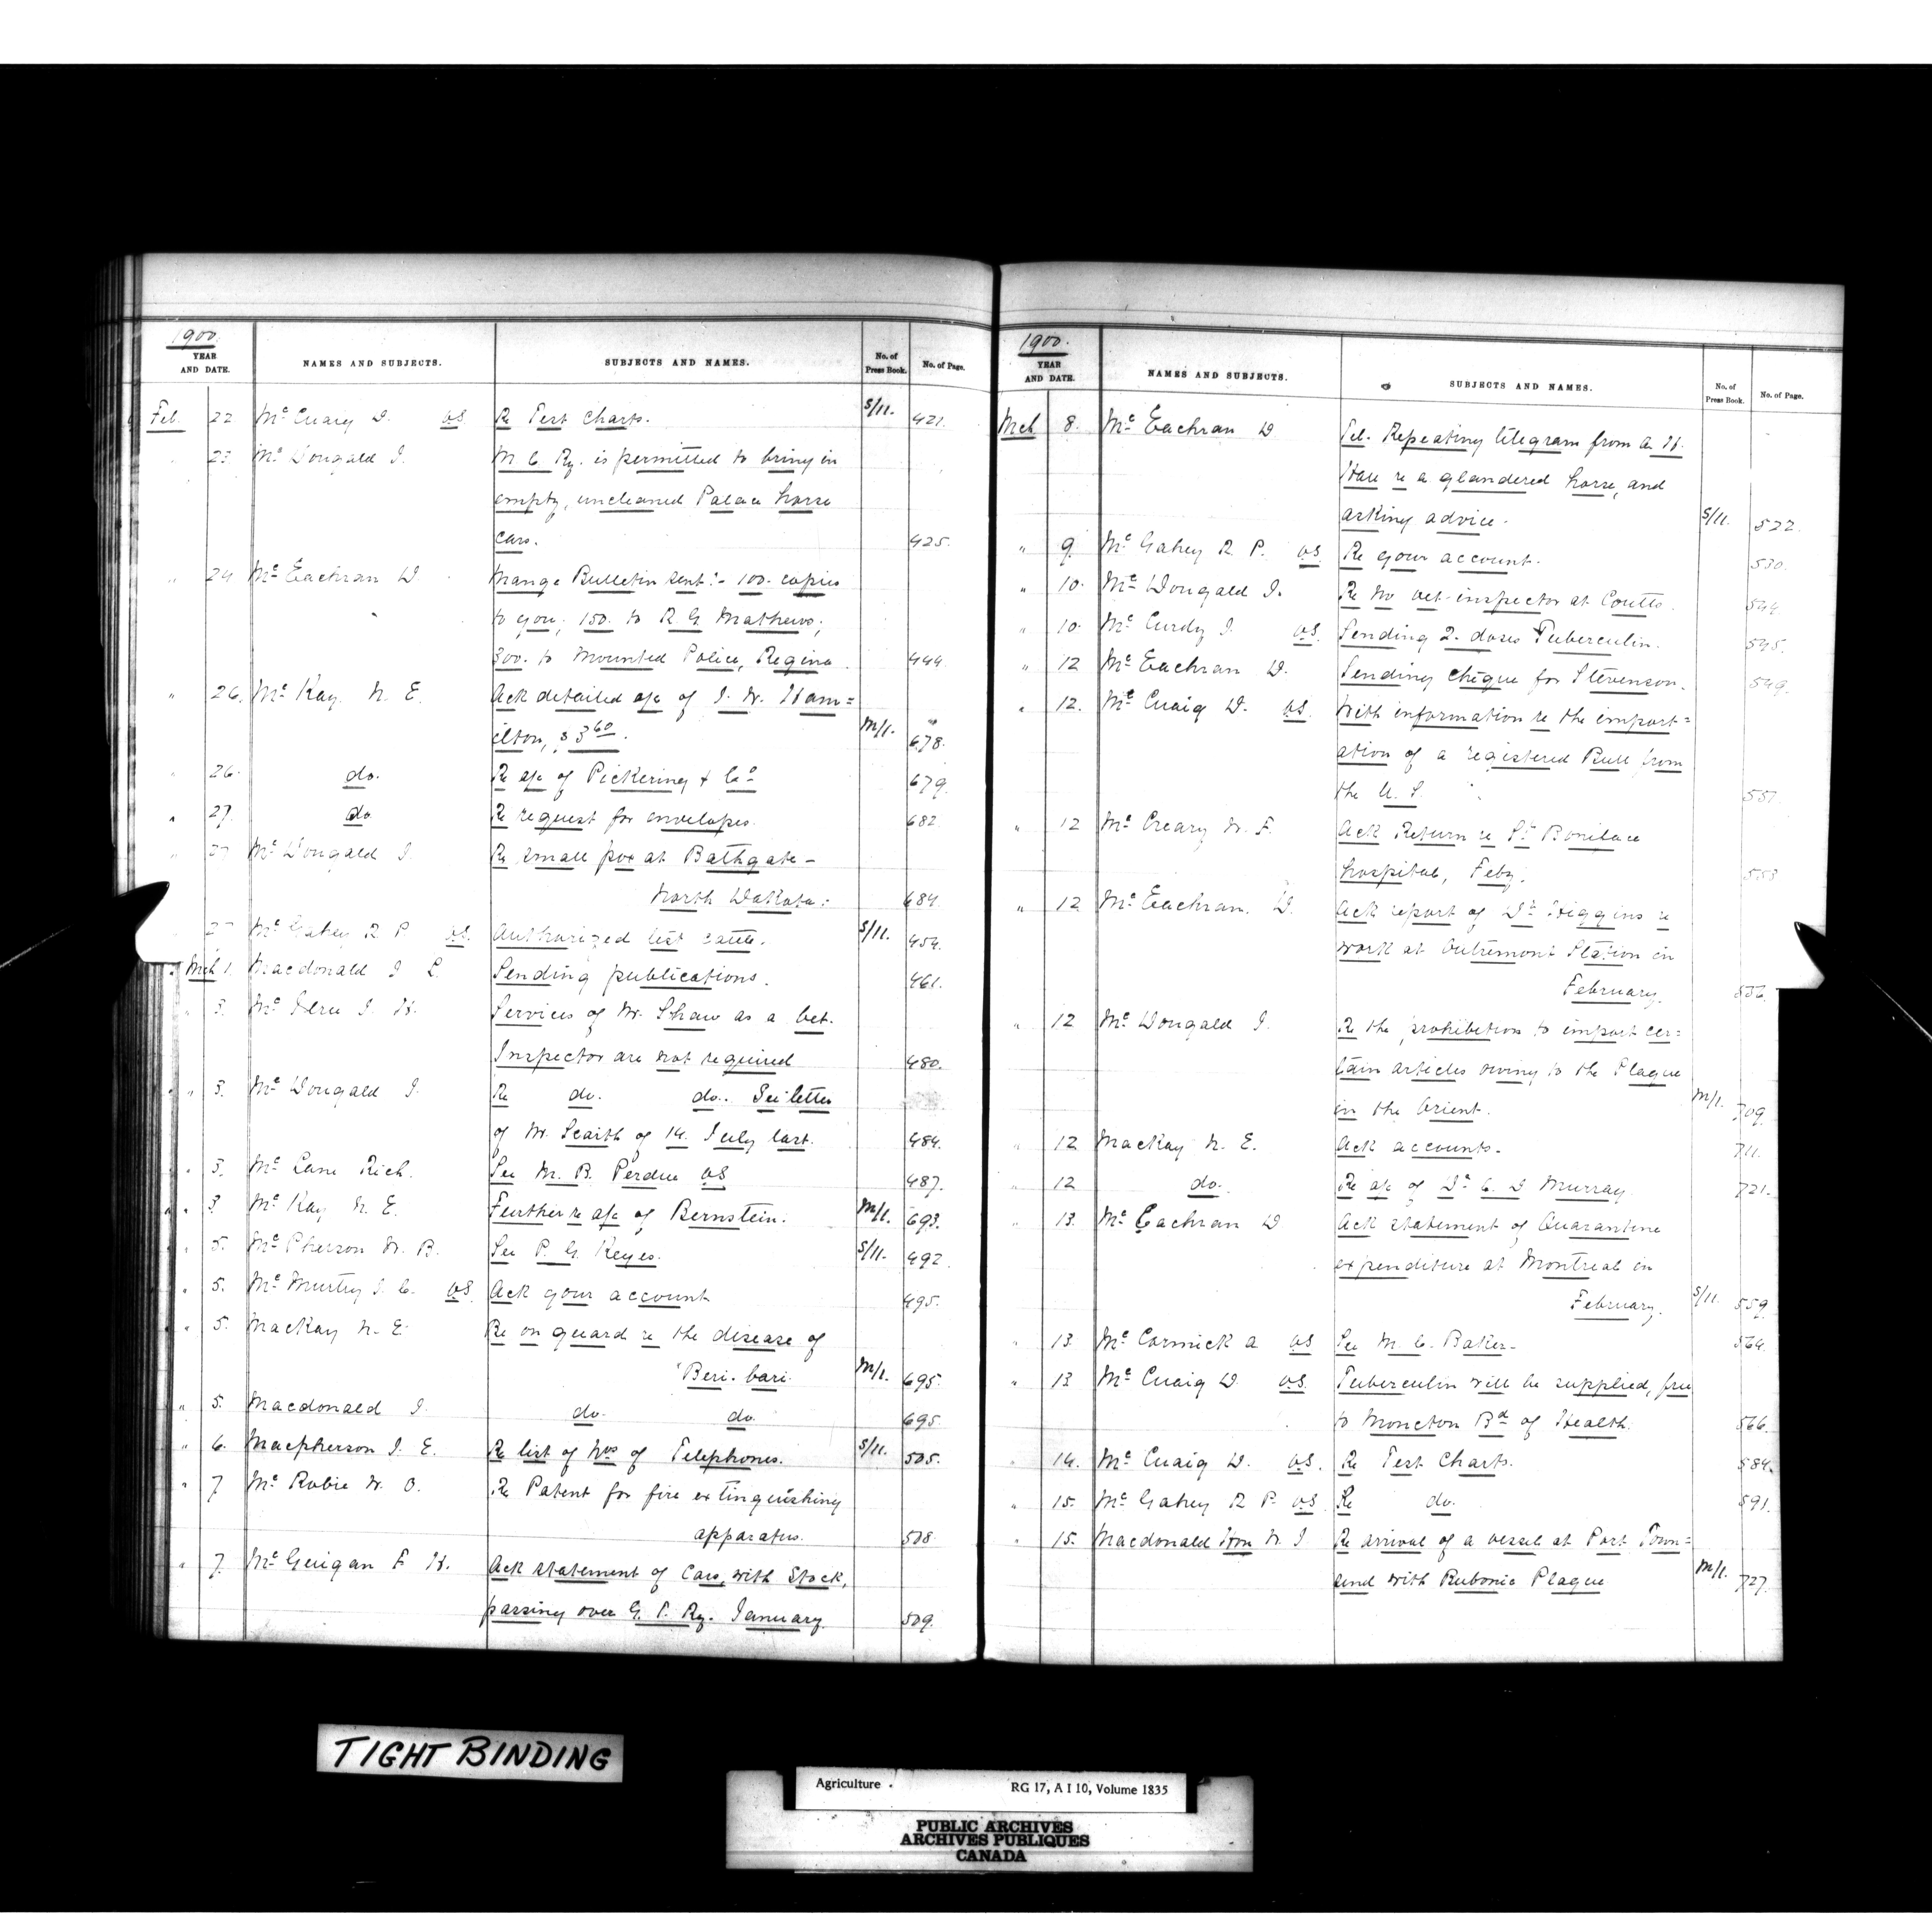 1900.
YEAR AND DATE.
NAMES AND SUBJECTS.
SUBJECTS AND NAMES.
No. of Press Book.
No. of Page.
Feb. 22 Mc Cuaig D. VS Re Test Charts. S/11. 421.
" 23 Mc Dougald J. M C Ry. is permitted to bring in
empty, uncleaned Palace horse
cars. 425.
" 24 Mc Eachran D. Mange Bulletin sent:- 100. copies
to you; 150. to R G Mathews;
300. to Mounted Police, Regina. 444.
" 26. Mc Kay N. E. Ack detailed a/c of J. W. Ham=
ilton, $3 60. M/1. 678.
" 26. do. Re a/c of Pickering & Co 679.
" 27. do Re request for envelopes. 682.
" 27 Mc Dougald J. Re small pox at Bathgate -
North Dakota: 684.
" 27 Mc Gahey R P VS. Authorized test cattle. S/11. 454.
Mch 1. Macdonald J L. Sending publications. 461.
" 3. J. H. Services of W. Shaw as a Vet.
Inspector are not required 480.
" 3. Mc Dougald J. Re do. do. See letter
of W. Scarth of 14. July last. 484.
" 3. Mc Lane Rich. See M. B. Perdue VS 487.
" 3 Mc Kay N. E. Further re a/c of Bernstein. M/1. 693.
" 5. Mc Pherson W. B. See P. G. Keyes. S/11. 492.
" 5. Mc Murtry J. C. VS. Ack your account 495.
" 5. MacKay N. E. Be on guard re the disease of
Beri-bari. M/1. 695.
" 5. Macdonald J. do. do. 695.
" 6. Macpherson J. E. Re list of Nos of Telephones. S/11. 505.
" 7 Mc Robie W. O. Re Patent for fire extinguishing
apparatus. 508.
" 7. Mc Guigan F. H. Ack statement of Cars, with Stock,
passing over G. T. Ry. January. 509.
1900.
YEAR AND DATE.
NAMES AND SUBJECTS.
SUBJECTS AND NAMES.
No. of Press Book.
No. of Page.
Mch 8. Mc Eachran D Tel. Repeating telegram from A. H.
Hall re a glandered horse, and
asking advice. S/11. 522.
" 9. Mc Gahey R P. VS. Re your account. 530.
" 10. Mc Dougald J. Re No vet-inspector at Coutts. 544.
" 10. Mc Curdy J. VS. Sending 2. doses Tuberculin. 545.
" 12 Mc Eachran D. Sending cheque for Stevenson. 549.
" 12. Mc Cuaig D. VS. With information re the import=
ation of a registered Bull from
the U. S. 551.
" 12 Mc Creary W. F. Ack Return re St Boniface
hospital, Feby. 553
" 12. Mc Eachran. D. Ack report of Dr Higgins re
work at Outremont Station in
February. 556.
" 12 Mc Dougald J. Re the prohibition to import cer=
tain articles owing to the Plague
in the Orient. M/1. 709.
" 12 MacKay N. E. Ack accounts. 711.
" 12 do. Re a/c of Dr C. D Murray. 721.
" 13. Mc Eachran D Ack statement of Quarantine
expenditure at Montreal in
February. S/11. 559.
" 13. Mc Cormick A VS See M. C. Baker. 564.
" 13 Mc Cuaig D. VS. Tuberculin will be supplied, free
to Moncton Bd of Health. 566.
" 14. Mc Cuaig D. VS. Re Test Charts. 584.
" 15. Mc Gahey R P. VS. Re do. 591.
" 15. Macdonald Hon W. J Re arrival of a vessel at Port Town=
send with Bubonic Plague M/1. 727.
TIGHT BINDING
Agriculture . RG 17, A I 10, Volume 1835
PUBLIC ARCHIVES
ARCHIVES PUBLIQUES
CANADA